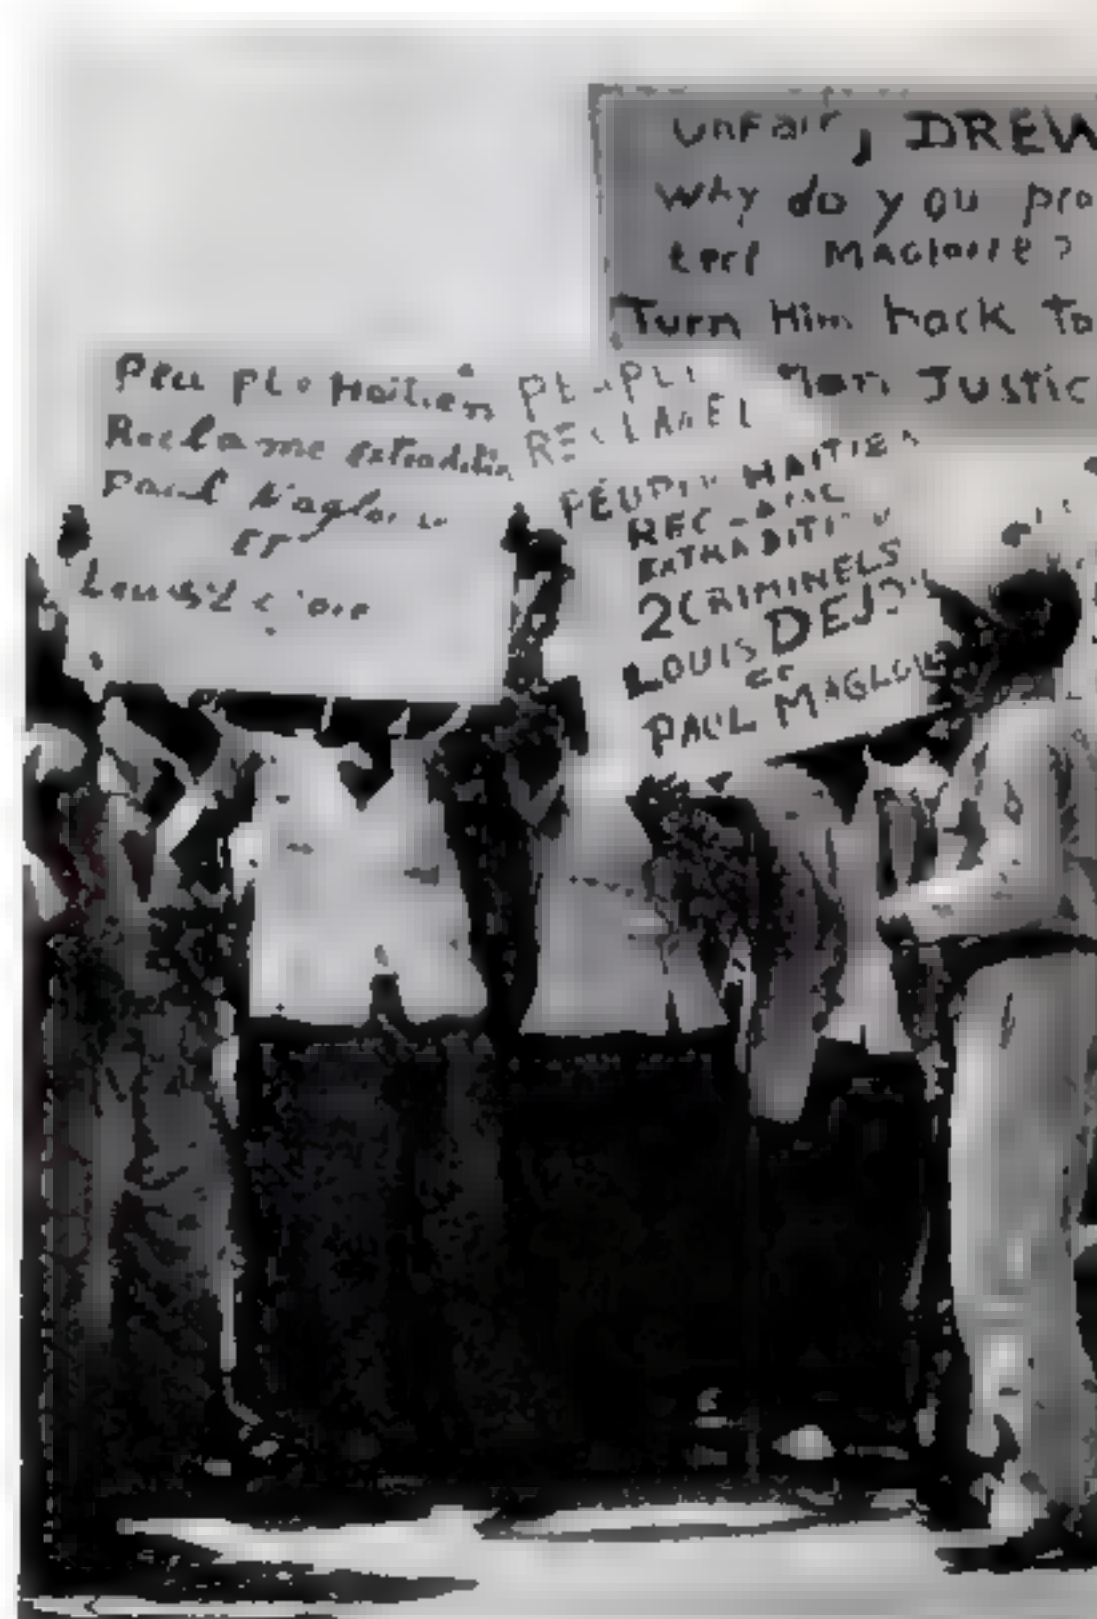 Unfair, DREW
Why do you pro
tect Magloire?
Turn Him back To
Justic
Peu ple Haitien
Reclame extradition
Paul Magloire
ET
PEUPLE
RECLAMEL
PEUPLE HAITIEN
RECLAME
EXTRADITION
2 CRIMINELS
LOUIS DEJOI
ET
PAUL MAGLOIRE